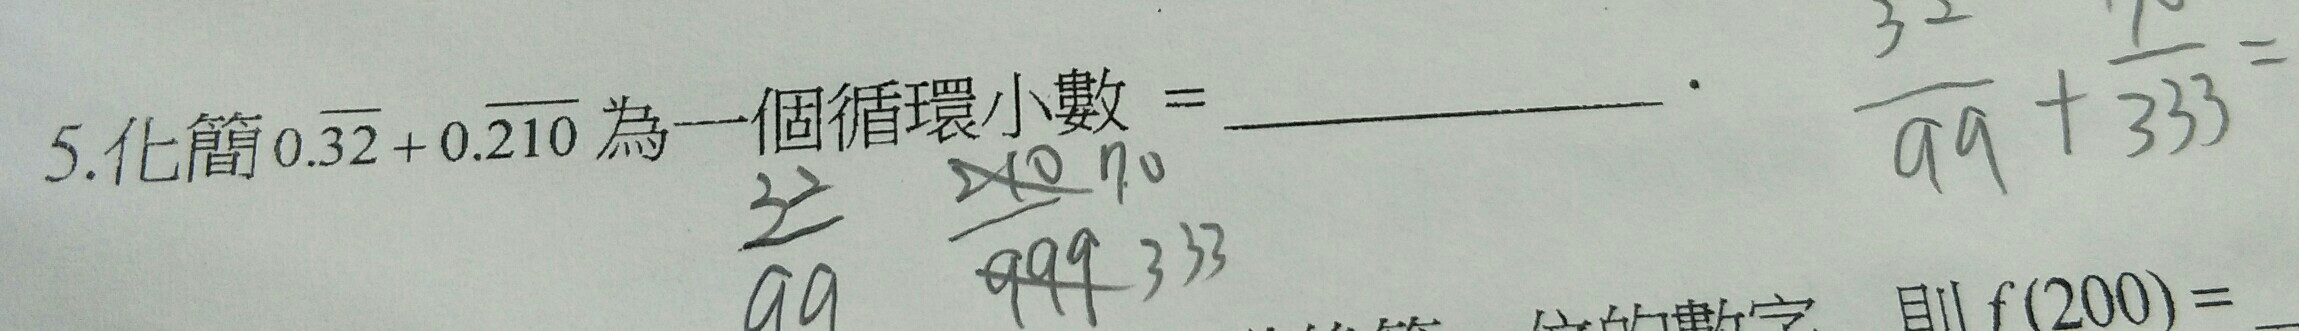 5.化簡 0.3̅2̅ + 0.2̅1̅0̅ 為一個循環小數 = ________.
32/99 + 70/333 =
32/99 210/999 70 333
位的數字 則 f(200) = _